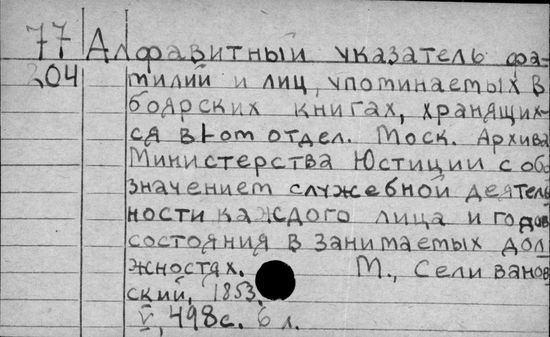 77 Алфавитный указатель фа-
204 милий и лиц, упоминаемых в
боярских книгах, хранящих-
ся в I-ом отдел. Моск. Архива
Министерства Юстиции с обо
значением служебной деятель
ности каждого лица и годов
состояния в занимаемых дол
жностях. М., Селиванов
ский, 1853.
V, 498 с. 6 л.